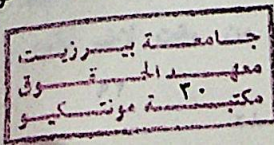 جامعة بيرزيت
معهد الحقوق
٢٠
مكتبة مونتكيو